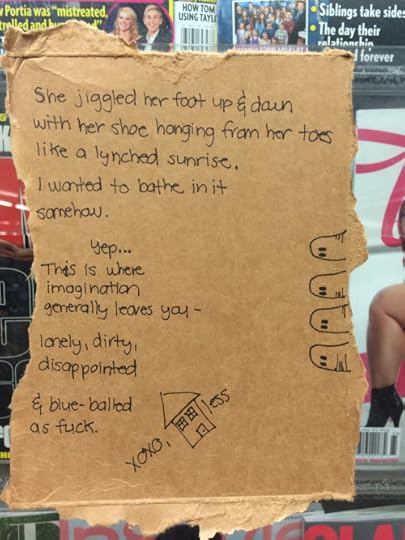 Portia was "mistreated,
HOW TOM
USING TAYLO
Siblings take sides
The day their
relationship
forever
She jiggled her foot up & down
with her shoe hanging from her toes
like a lynched sunrise.
I wanted to bathe in it
somehow.
Yep...
This is where
imagination
generally leaves you -
lonely, dirty,
disappointed
& blue-balled
as fuck.
xoxo,
less